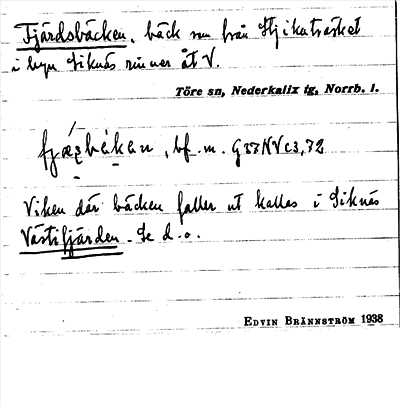 Fjärdsbäcken, bäck som från Stjikuträsket
i byn Siknäs rinner åt V.
Töre sn, Nederkalix tg, Norrb. l.
bf. m.
Viken där bäcken faller ut kallas i Siknäs
Västifjärden. Se d. o.
EDVIN BRÄNNSTRÖM 1938